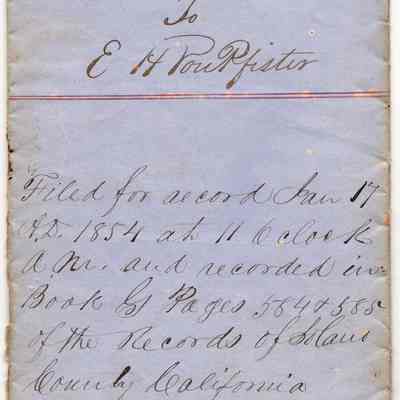 To
E H Von Pfister
Filed for record Jan 17
A.D. 1854 at 11 O clock
A.M. and recorded in
Book G Pages 584 & 585
of the Records of Solano
County California